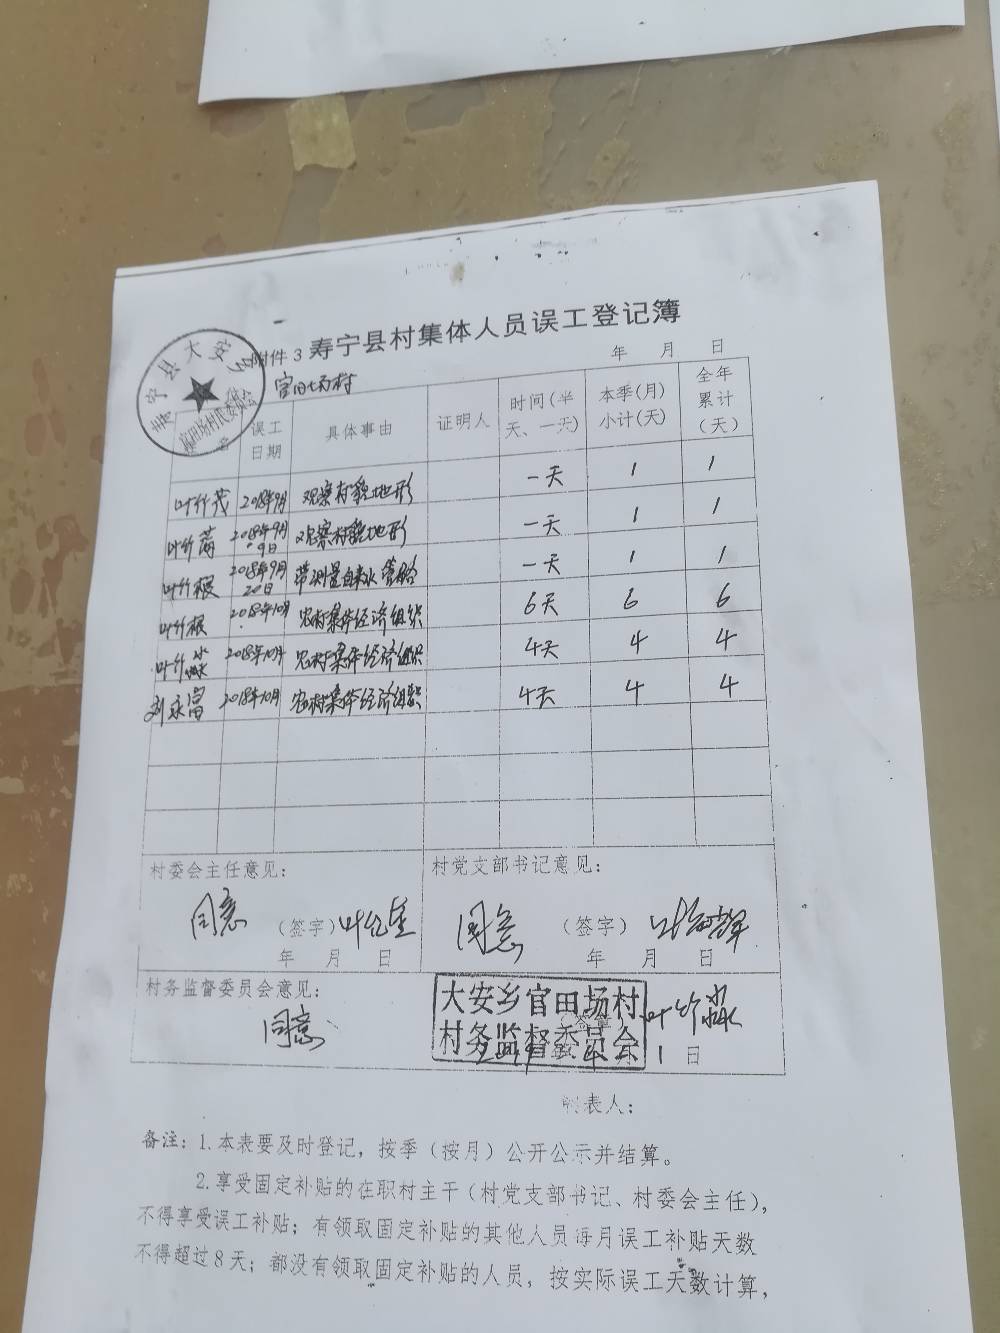 附件3 寿宁县村集体人员误工登记簿
寿宁县大安乡
官田场村
年 月 日
误工日期 具体事由 证明人 时间(半天、一天) 本季(月)小计(天) 全年累计(天)
叶竹茂 2018年9月 观察村貌地形 一天 1 1
叶竹 2018年9月9日 观察村貌地形 一天 1 1
叶竹根 2018年9月20日 带测量自来水管路 一天 1 1
叶竹根 2018年10月 农村集体经济组织 6天 6 6
叶竹淼 2018年10月 农村集体经济组织 4天 4 4
刘永富 2018年10月 农村集体经济组织 4天 4 4
村委会主任意见: 村党支部书记意见:
同意 (签字) 同意 (签字)
年 月 日 年 月 日
村务监督委员会意见:
同意
大安乡官田场村
村务监督委员会
叶竹淼
1日
制表人:
备注: 1.本表要及时登记，按季（按月）公开公示并结算。
2.享受固定补贴的在职村主干（村党支部书记、村委会主任），
不得享受误工补贴；有领取固定补贴的其他人员每月误工补贴天数
不得超过8天；都没有领取固定补贴的人员，按实际误工天数计算，